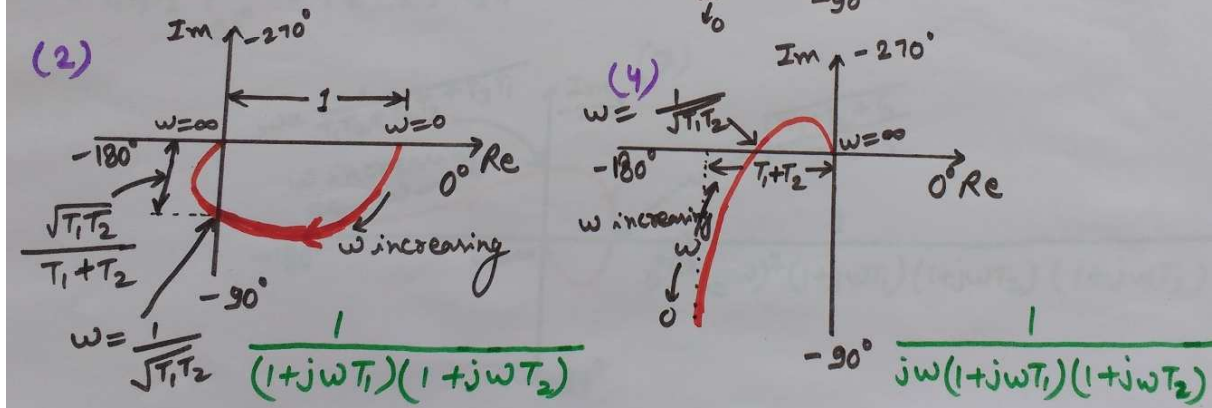 (2)
Im
-270°
1
ω=∞
ω=0
-180°
0° Re
√T₁T₂
T₁+T₂
ω increasing
-90°
ω= 1/√T₁T₂
1
(1+jωT₁)(1+jωT₂)
↓0
-90°
(4)
Im
-270°
ω= 1/√T₁T₂
ω=∞
-180°
T₁+T₂
0° Re
ω increasing
ω
0
-90°
1
jω(1+jωT₁)(1+jωT₂)